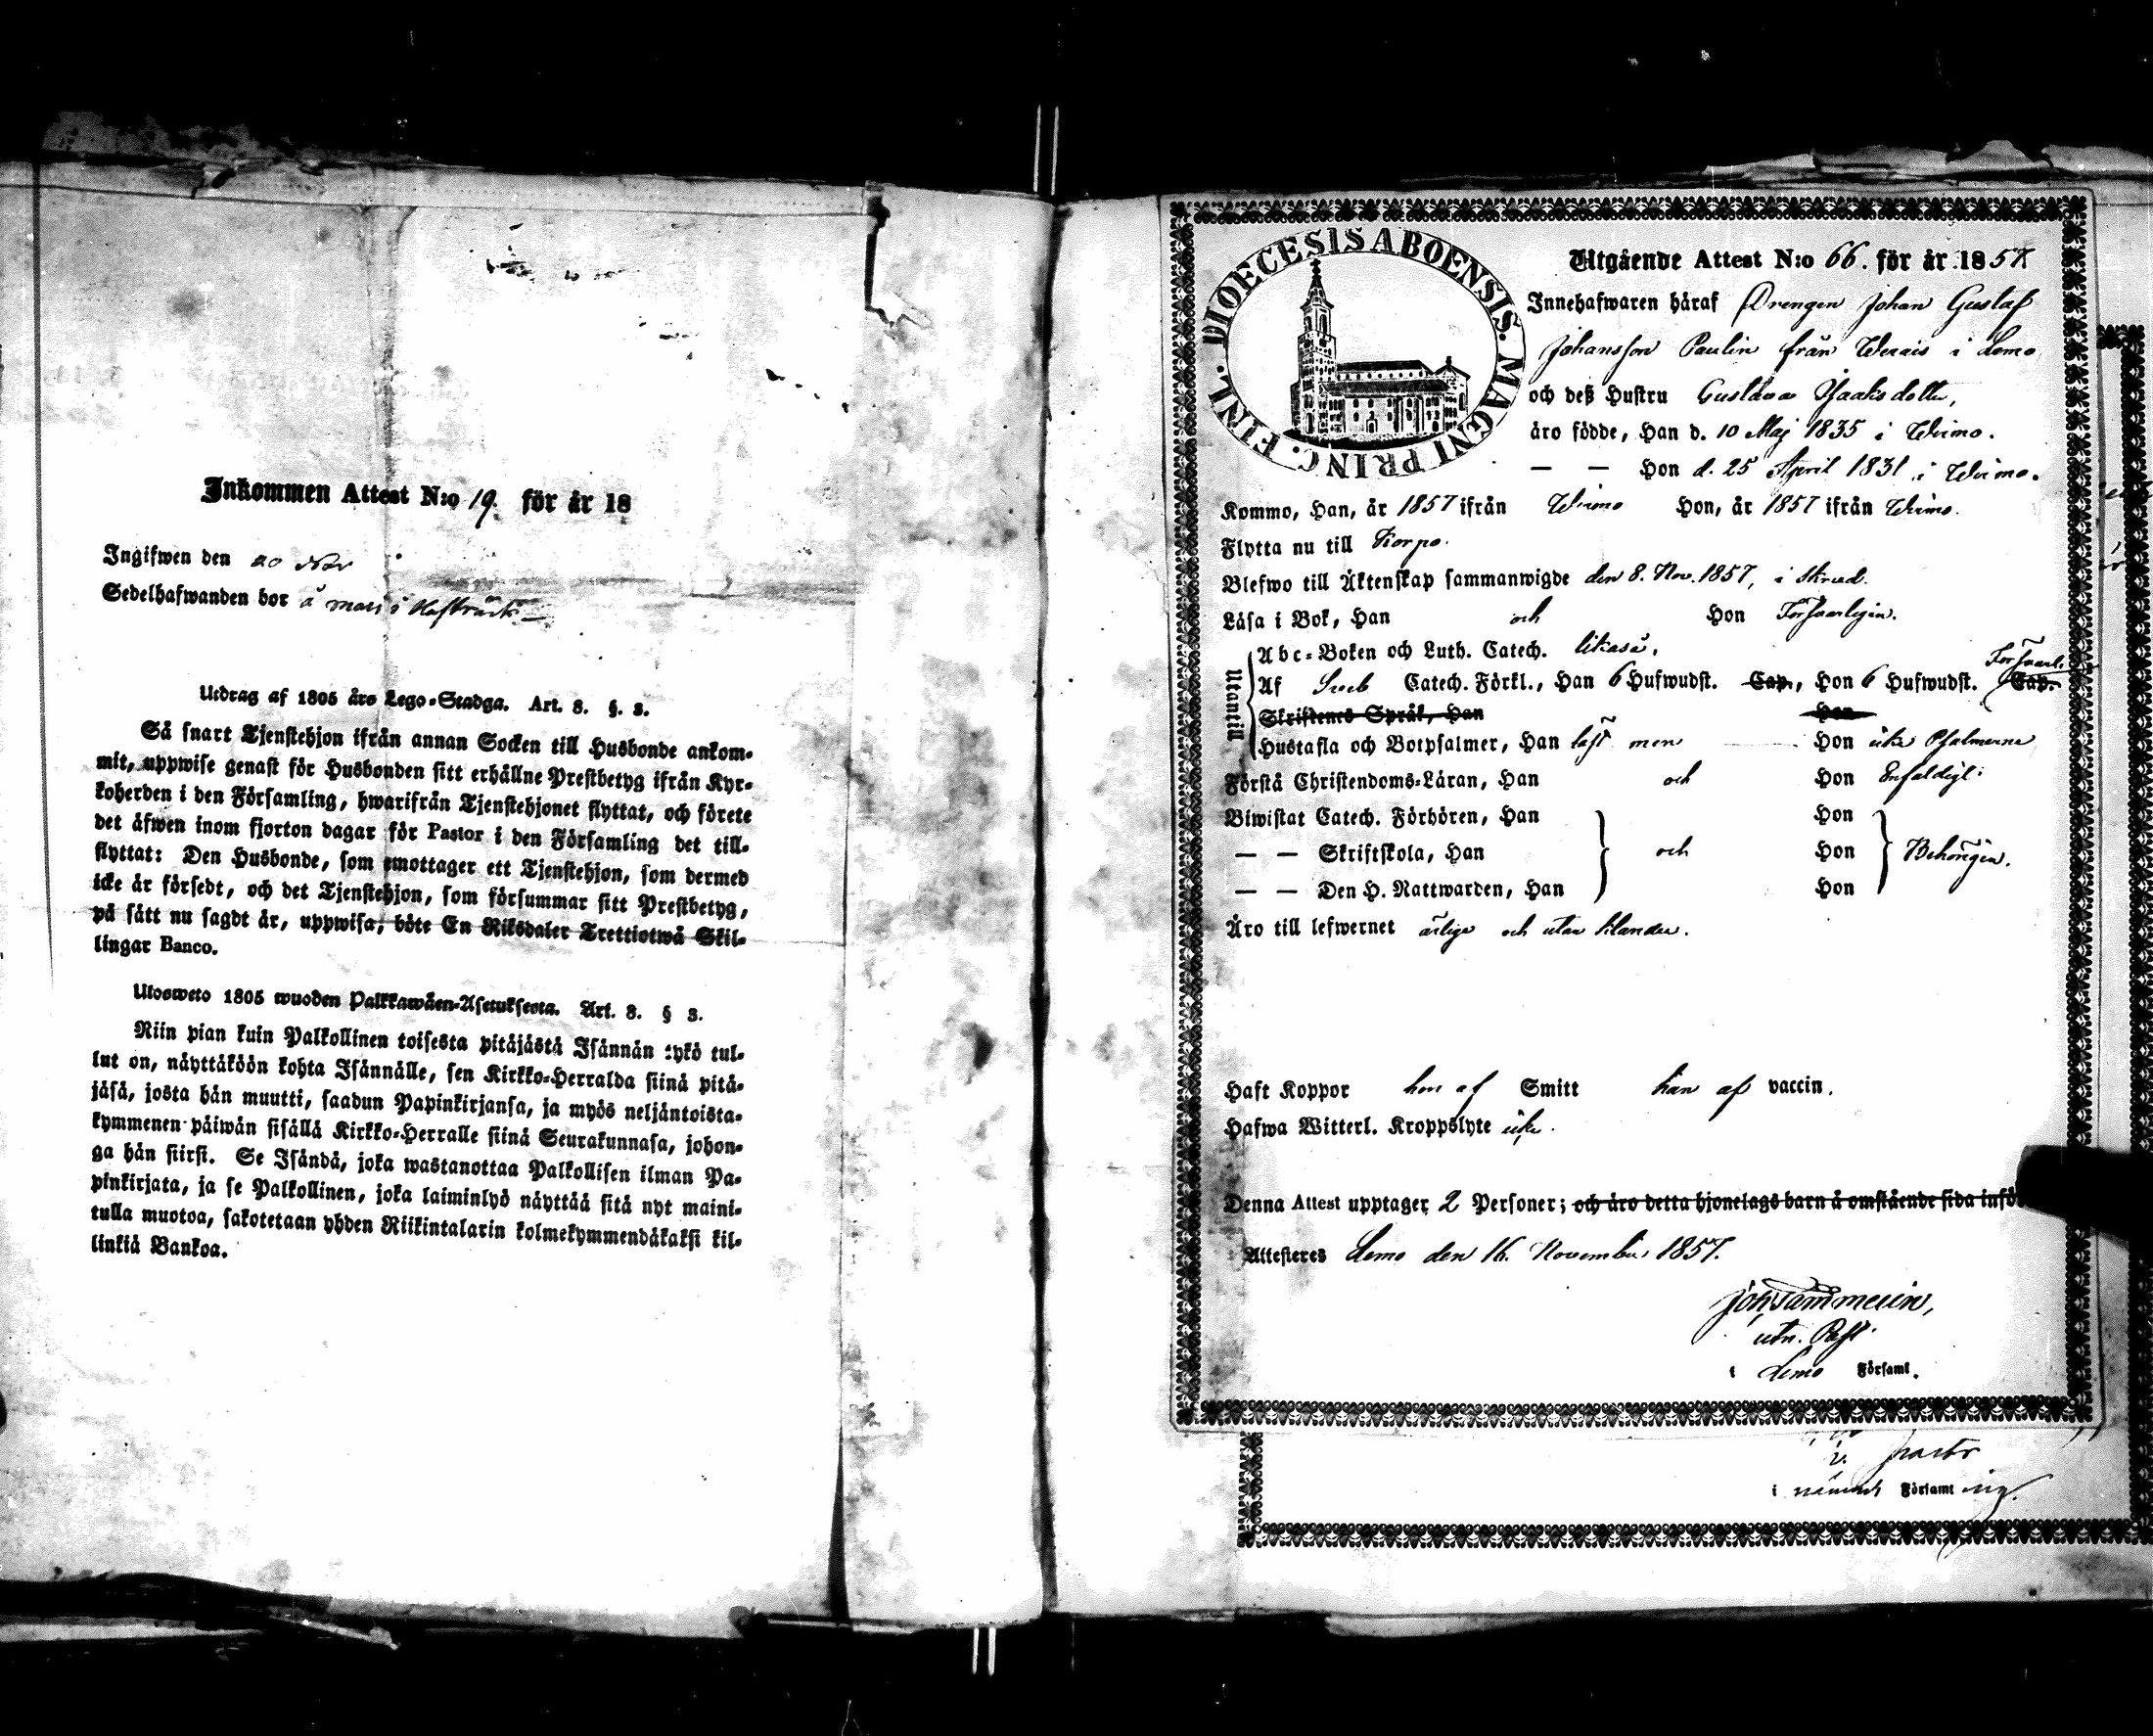 Inkommen Attest N:o 19. för år 18
Ingifwen den 20 Nov
Sedelhafwanden bor å
Utdrag af 1805 års Lego-Stadga. Art. 8. §. 3.
Så snart Tjenstehjon ifrån annan Socken till Husbonde ankom-
mit, uppwise genast för Husbonden sitt erhållne Prestbetyg ifrån Kyr-
koherden i den Församling, hwarifrån Tjenstehjonet flyttat, och förete
det äfwen inom fjorton dagar för Pastor i den Församling det till-
flyttat: Den Husbonde, som emottager ett Tjenstehjon, som dermed
icke är försedt, och det Tjenstehjon, som försummar sitt Prestbetyg,
på sätt nu sagdt är, uppwisa, böte En Riksdaler Trettiotwå Skil-
lingar Banco.
Ulosweto 1805 wuoden Palkkawäen-Asetuksesta. Art. 8. § 3.
Niin pian kuin Palkollinen toisesta pitäjästä Isännän tykö tul-
lut on, näyttäköön kohta Isännälle, sen Kirkko-Herralda siinä pitä-
jäsä, josta hän muutti, saadun Papinkirjansa, ja myös neljäntoista-
kymmenen päiwän sisällä Kirkko-Herralle siinä Seurakunnasa, johon-
ga hän siirsi. Se Isändä, joka wastanottaa Palkollisen ilman Pa-
pinkirjata, ja se Palkollinen, joka laiminlyö näyttää sitä nyt maini-
tulla muotoa, sakotetaan yhden Riikintalarin kolmekymmendäkaksi kil-
linkiä Bankoa.
DIOECESIS ABOENSIS. MAGNI PRINC. FINL.
Utgående Attest N:o 66. för år 1857
Innehafwaren häraf Drengen Johan Gustaf
Johansson Paulin från Werais i Lemo
och deß Hustru Gustava Isaaksdotter,
äro födde, Han d. 10 Maj 1835 i Wirmo.
— — Hon d. 25 April 1831 i Wirmo.
Kommo, Han, år 1857 ifrån Wirmo Hon, år 1857 ifrån Wirmo.
Flytta nu till Korpo.
Blefwo till Äktenskap sammanwigde den 8. Nov. 1857, i Skrud.
Läsa i Bok, Han och Hon Försvarligen.
Utantill
Abc-Boken och Luth. Catech. likaså.
Försvarl.
Af Sveb Catech. Förkl., Han 6 Hufwudst. Cap., Hon 6 Hufwudst. Cap.
Skriftenes Språk, Han Hon
Hustafla och Botpsalmer, Han läst men Hon icke Psalmerne
Förstå Christendoms-Läran, Han och Hon Enfaldigt:
Biwistat Catech. Förhören, Han Hon
— — Skriftskola, Han och Hon Behörigen.
— — Den H. Nattwarden, Han Hon
Äro till lefwernet ärlige och utan klander.
Haft Koppor hon af Smitt han af vaccin.
Hafwa Witterl. Kroppslyte icke.
Denna Attest upptager 2 Personer; och äro detta hjonelags barn å omstående sida inför
Attesteres Lemo den 16. November 1857.
utn. Past.
i Lemo Församl.
v. pastor
i nämnde Församl ing.